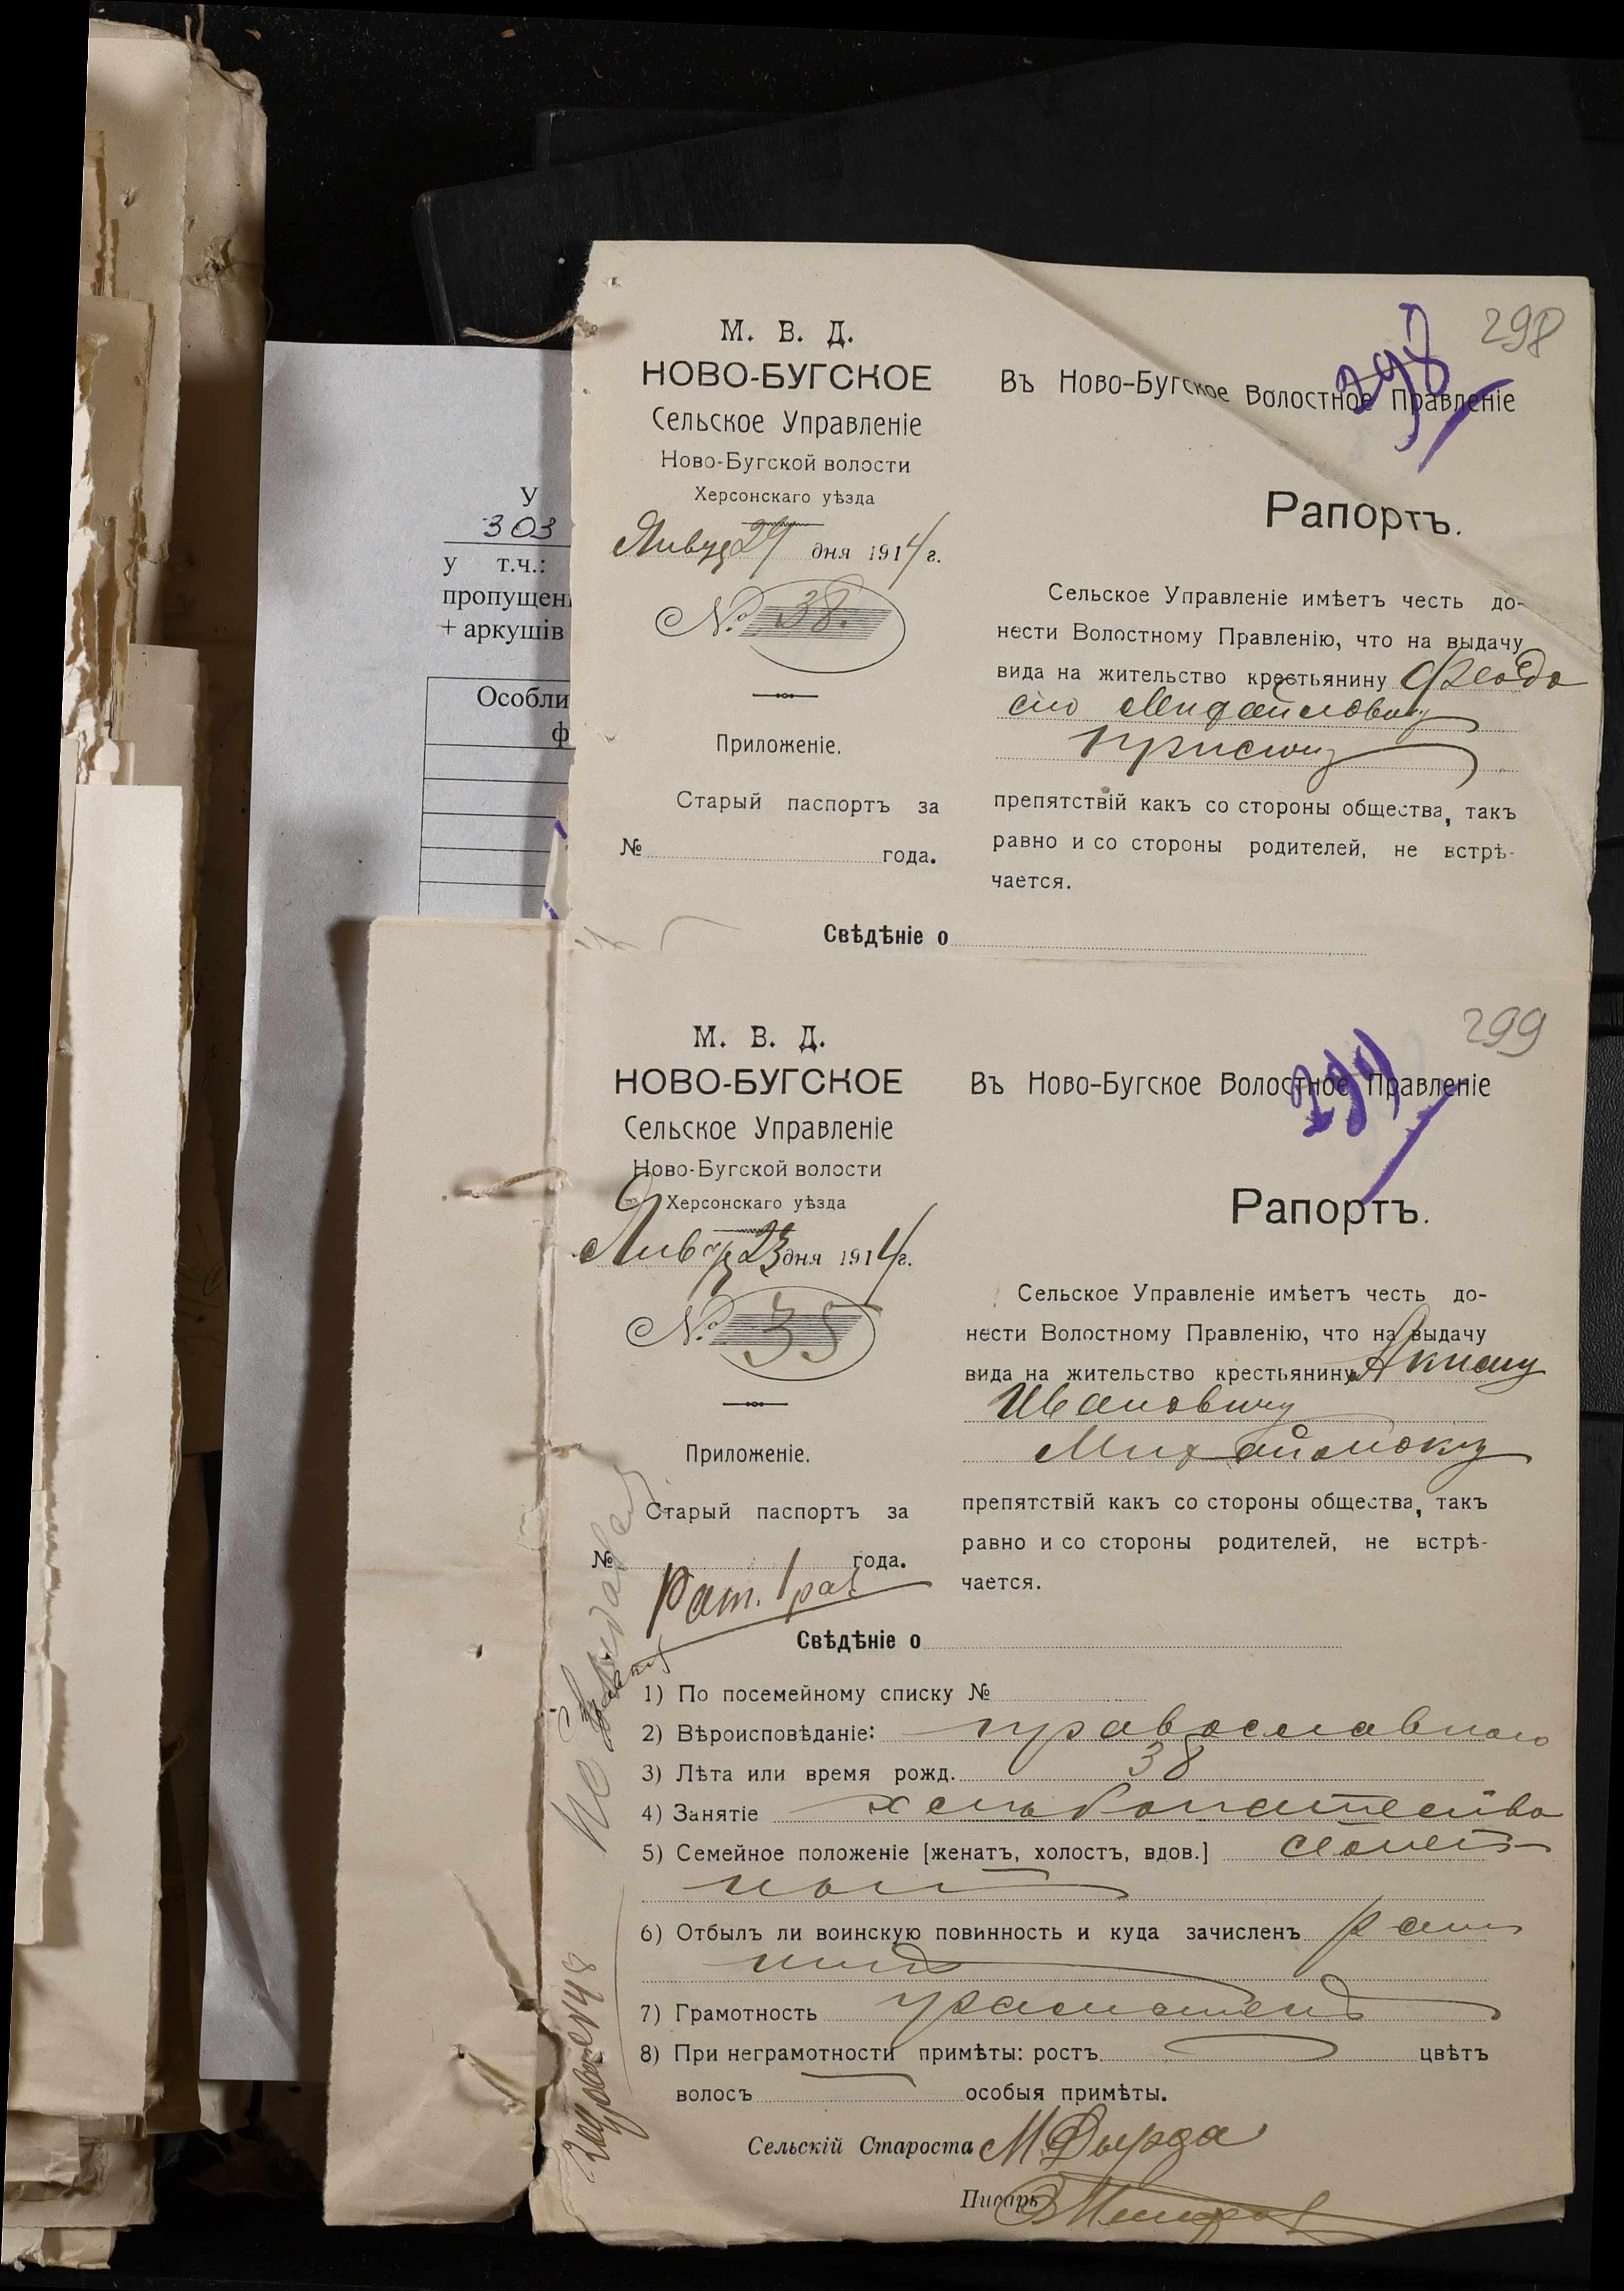 У
303
у т.ч.:
пропущен
+ аркушів
Особли
ф
298
298
М. В. Д.
НОВО-БУГСКОЕ
Сельское Управленіе
Ново-Бугской волости
Херсонскаго уѣзда
дня 1914 г.
№ 38.
Приложеніе.
Старый паспортъ за
№ года.
Въ Ново-Бугское Волостное Правленіе
Рапортъ.
Сельское Управленіе имѣетъ честь до-
нести Волостному Правленію, что на выдачу
вида на жительство крестьянину Феодо
сію Михайловичу
препятствій какъ со стороны общества, такъ
равно и со стороны родителей, не встрѣ-
чается.
Свѣдѣніе о
299
299
М. В. Д.
НОВО-БУГСКОЕ
Сельское Управленіе
Ново-Бугской волости
Херсонскаго уѣзда
Январ 23 дня 1914 г.
№ 35
Приложеніе.
Старый паспортъ за
№ года.
Рат. 1 раз
Въ Ново-Бугское Волостное Правленіе
Рапортъ.
Сельское Управленіе имѣетъ честь до-
нести Волостному Правленію, что на выдачу
вида на жительство крестьянину Акиму
Ивановичу
препятствій какъ со стороны общества, такъ
равно и со стороны родителей, не встрѣ-
чается.
Свѣдѣніе о
1) По посемейному списку №
2) Вѣроисповѣданіе: православного
3) Лѣта или время рожд. 38
4) Занятіе
5) Семейное положеніе [женатъ, холостъ, вдов.] семей
ный
6) Отбылъ ли воинскую повинность и куда зачисленъ рат
никъ
7) Грамотность грамотенъ
8) При неграмотности примѣты: ростъ цвѣтъ
волосъ особыя примѣты.
Сельскій Староста М Дырда
Писарь